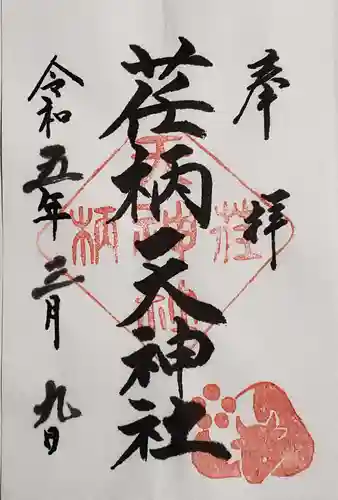 奉拝
荏柄天神社
令和五年三月九日
荏柄天神